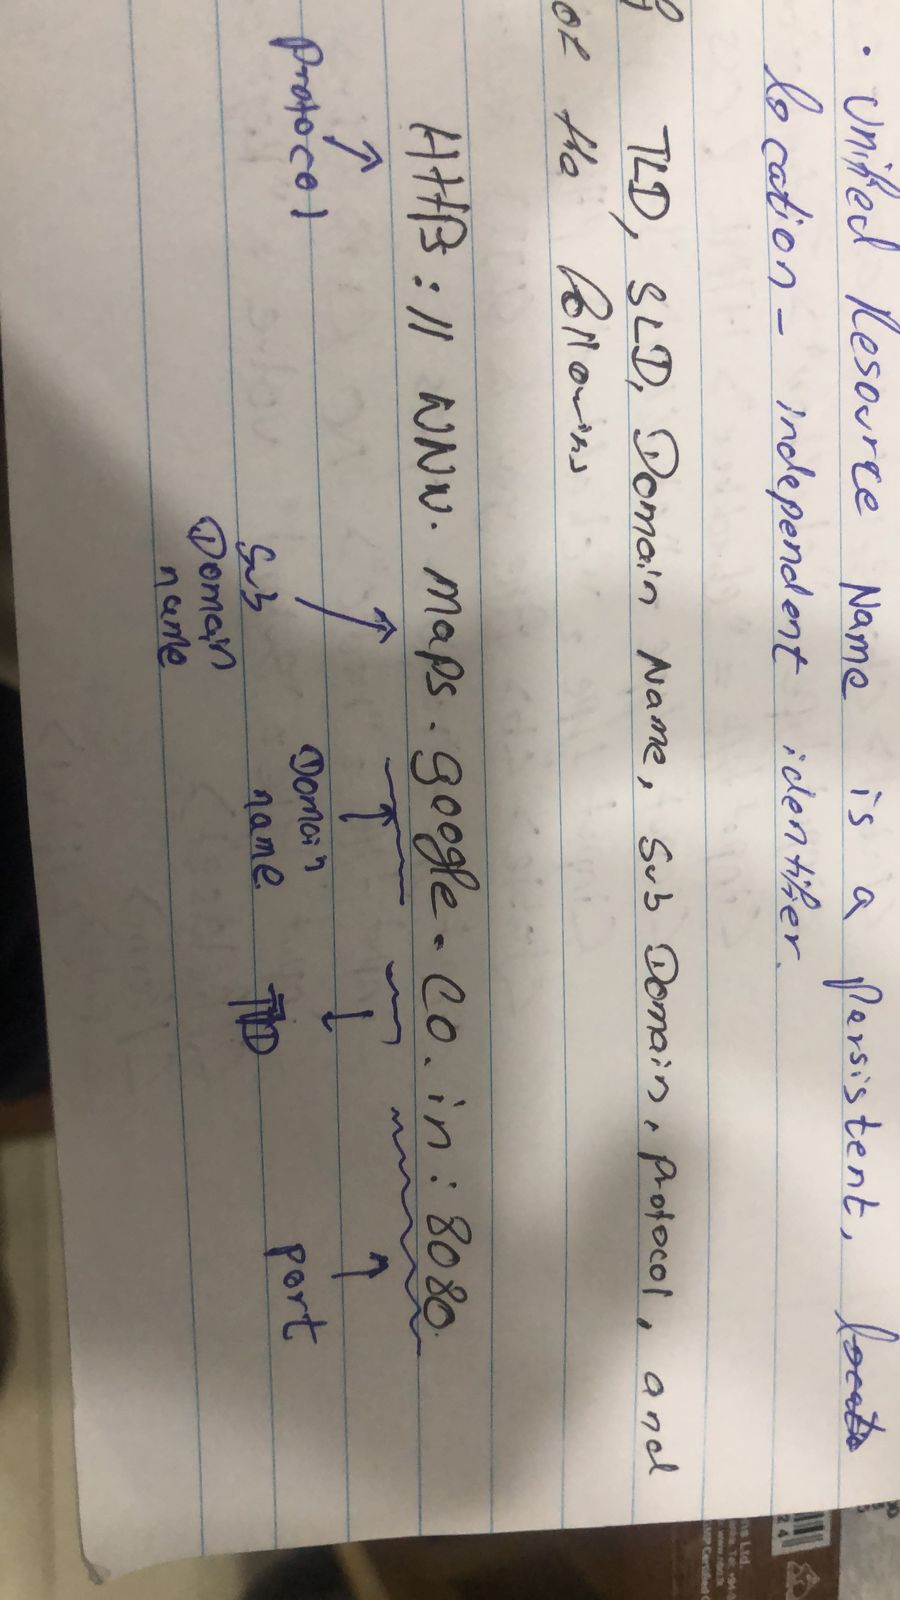 • Unified Resource Name is a persistent,
location - independent identifier.
TLD, SLD, Domain Name, Sub Domain, protocol, and
of the following
Https://www.maps.google.co.in:8080
protocol
Sub
Domain
name
Domain
name
TLD
port
24
ns Ltd.
www.nbo.lk
GMP Certified C